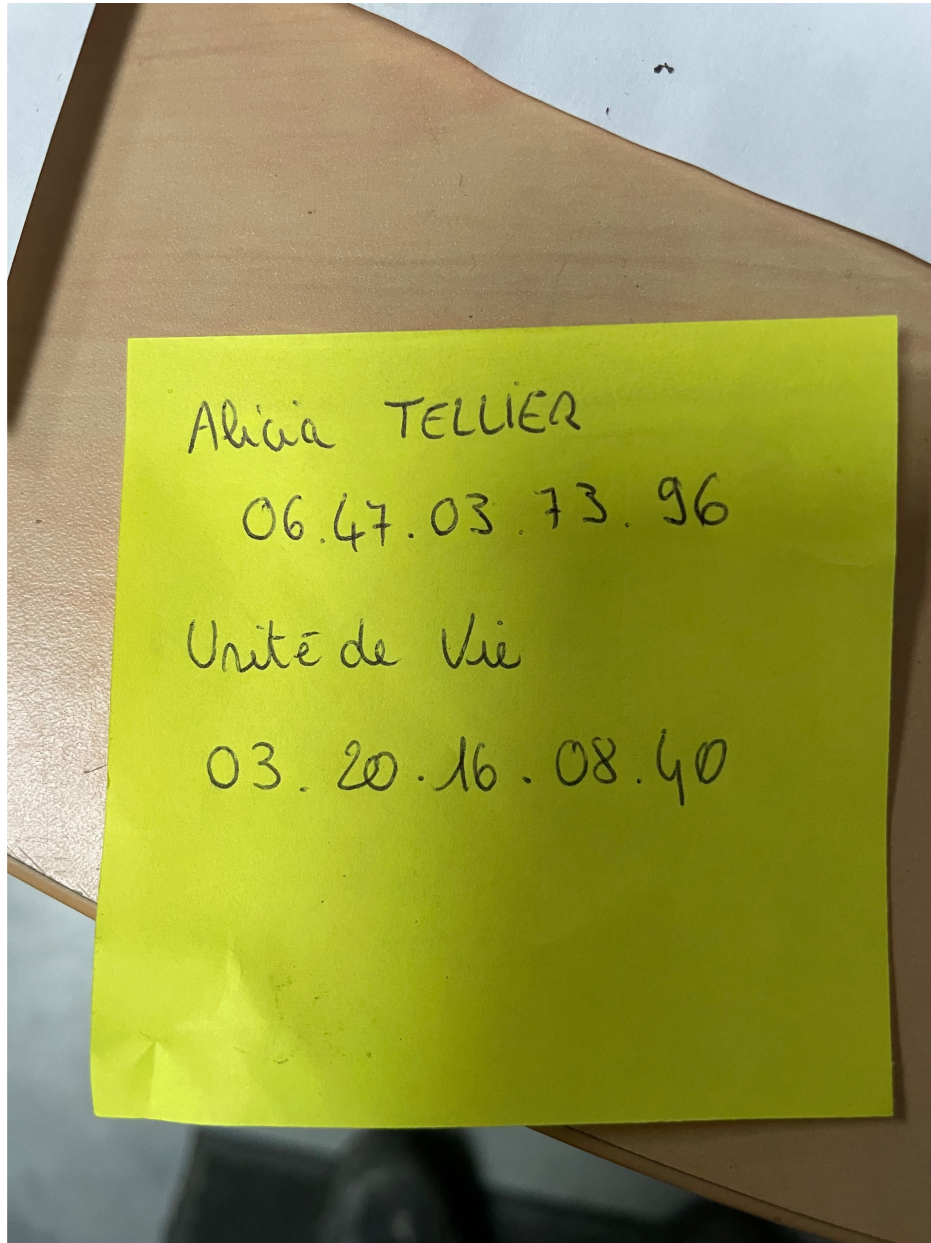 Alicia TELLIER
06.47.03.73.96
Unité de Vie
03.20.16.08.40